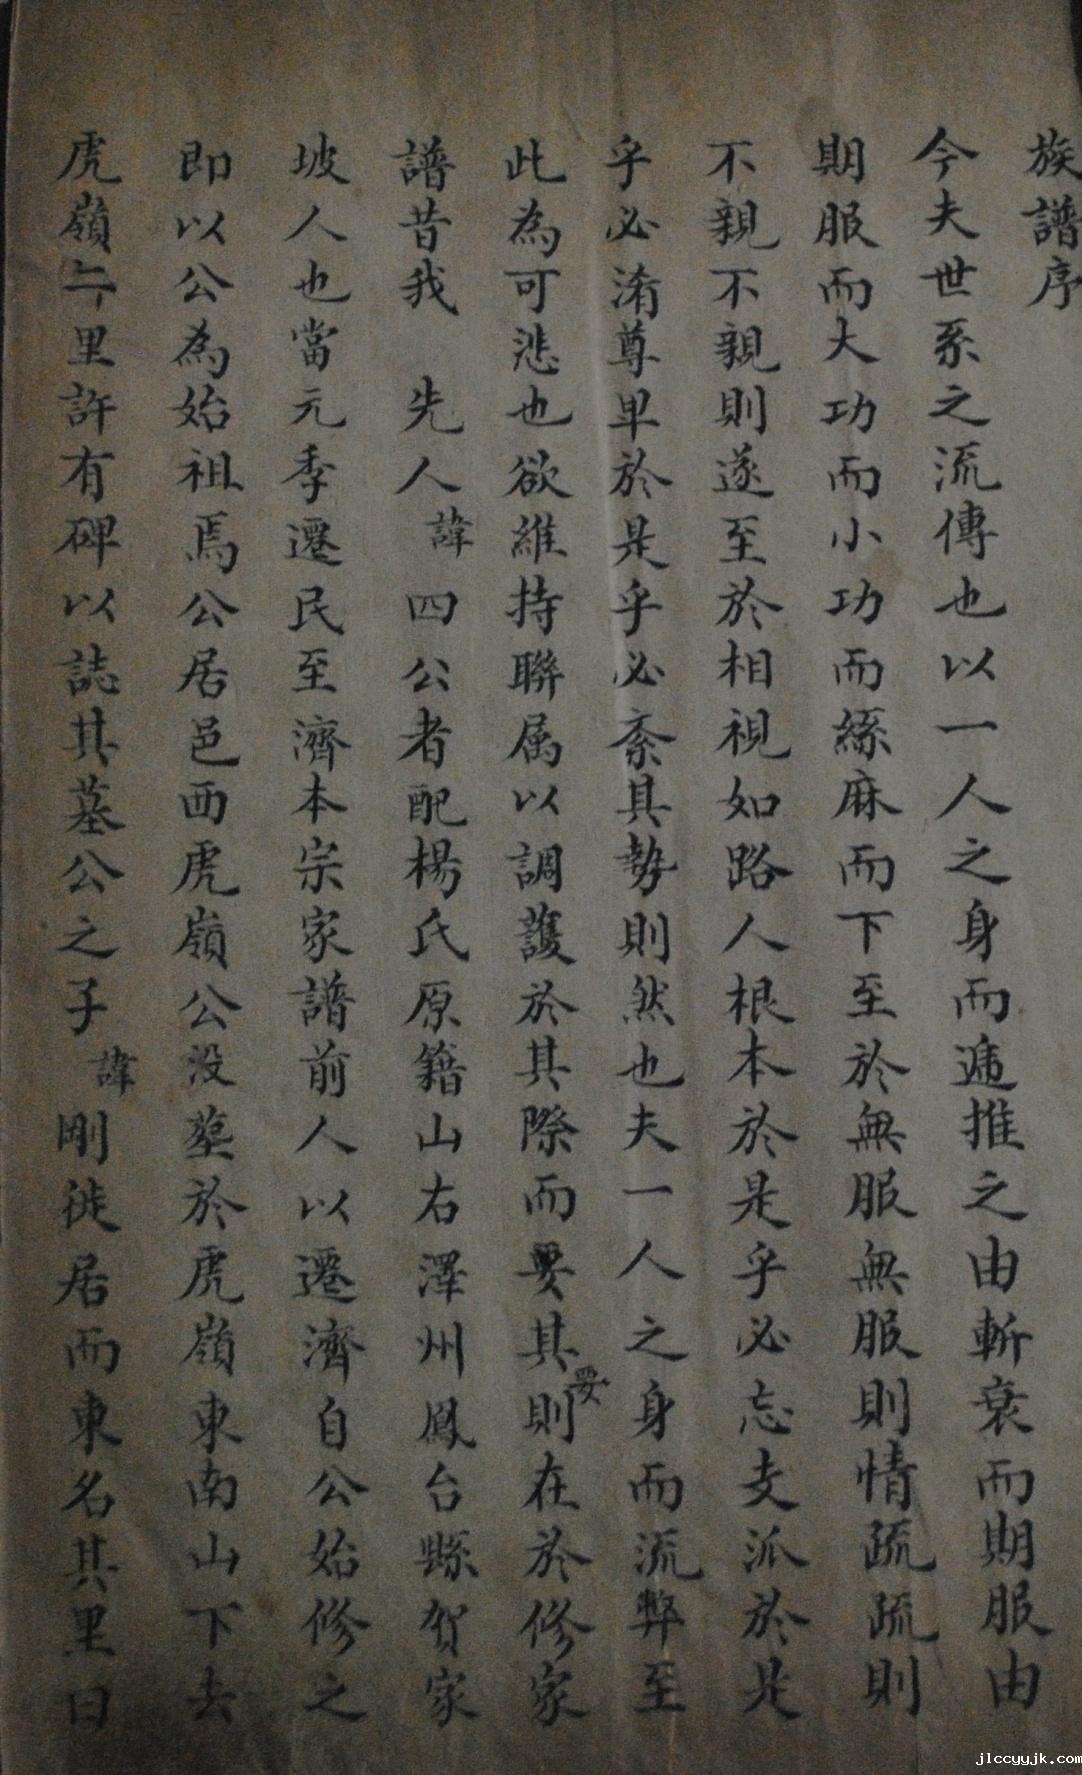 族譜序
今夫世系之流傳也以一人之身而遞推之由斬衰而期服由
期服而大功而小功而緦麻而下至於無服無服則情疏疏則
不親不親則遂至於相視如路人根本於是乎必忘支派於是
乎必淆尊卑於是乎必紊其勢則然也夫一人之身而流弊至
此為可悲也欲維持聯属以調護於其際而要其要則在於修家
譜昔我 先人諱四公者配楊氏原籍山右澤州鳳台縣賀家
坡人也當元季遷民至濟本宗家譜前人以遷濟自公始修之
即以公為始祖焉公居邑西虎嶺公没塟於虎嶺東南山下去
虎嶺里許有碑以誌其墓公之子諱剛徙居而東名其里曰
jlccyyjk.com